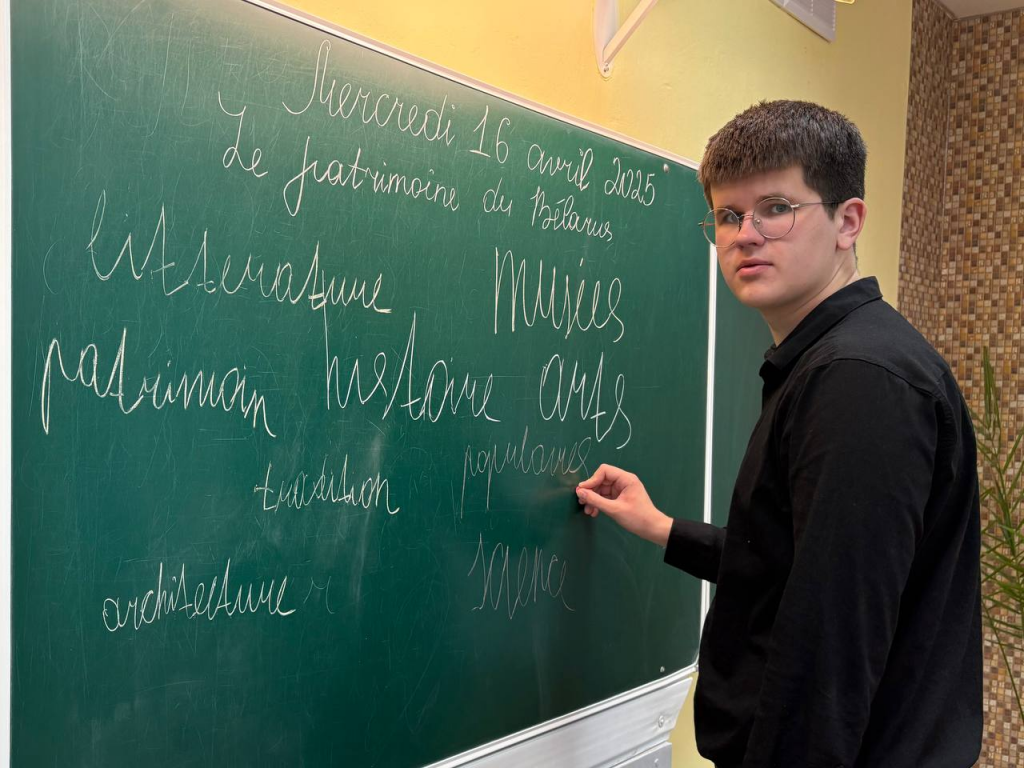 Mercredi 16 avril 2025
Le patrimoine du Bélarus
litterature musées
patrimoin histoire arts
populaires
tradition
architecture science